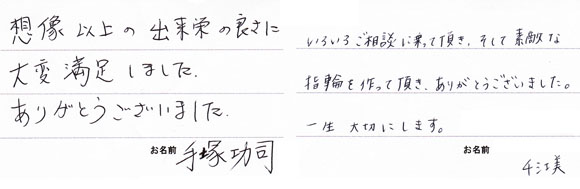 想像以上の出来栄の良さに
大変満足しました.
ありがとうございました.
お名前 手塚功司
いろいろご相談に乗って頂き、そして素敵な
指輪を作って頂き、ありがとうございました。
一生大切にします。
お名前
千江美